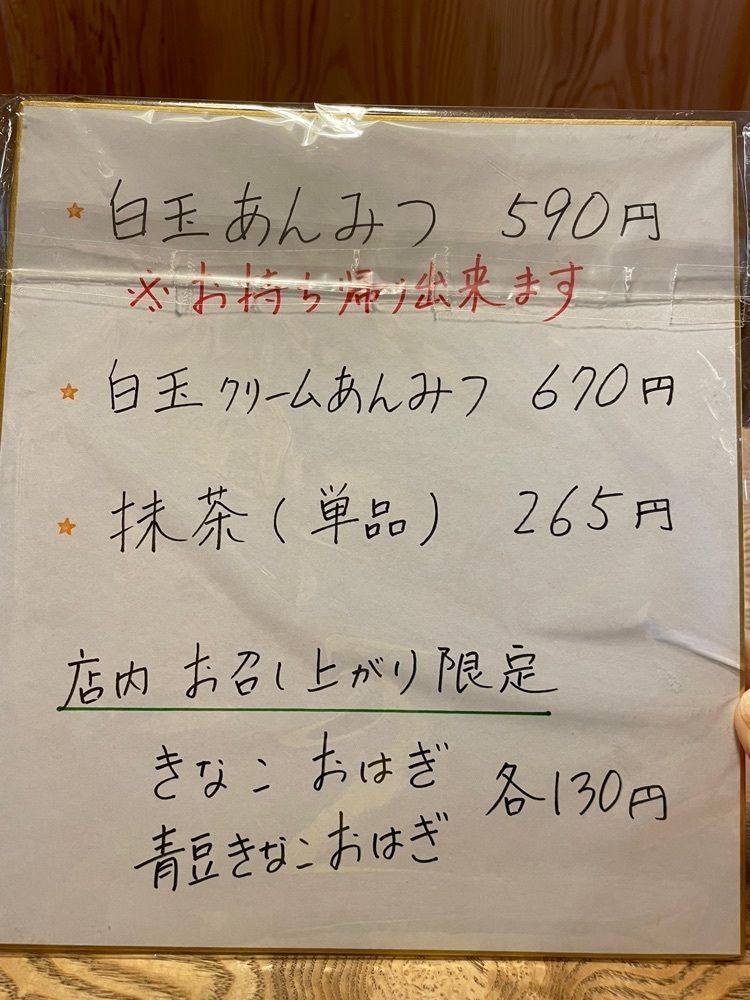 ★ 白玉あんみつ 590円
※お持ち帰り出来ます
★ 白玉クリームあんみつ 670円
★ 抹茶(単品) 265円
店内 お召し上がり限定
きなこ おはぎ
各130円
青豆きなこおはぎ